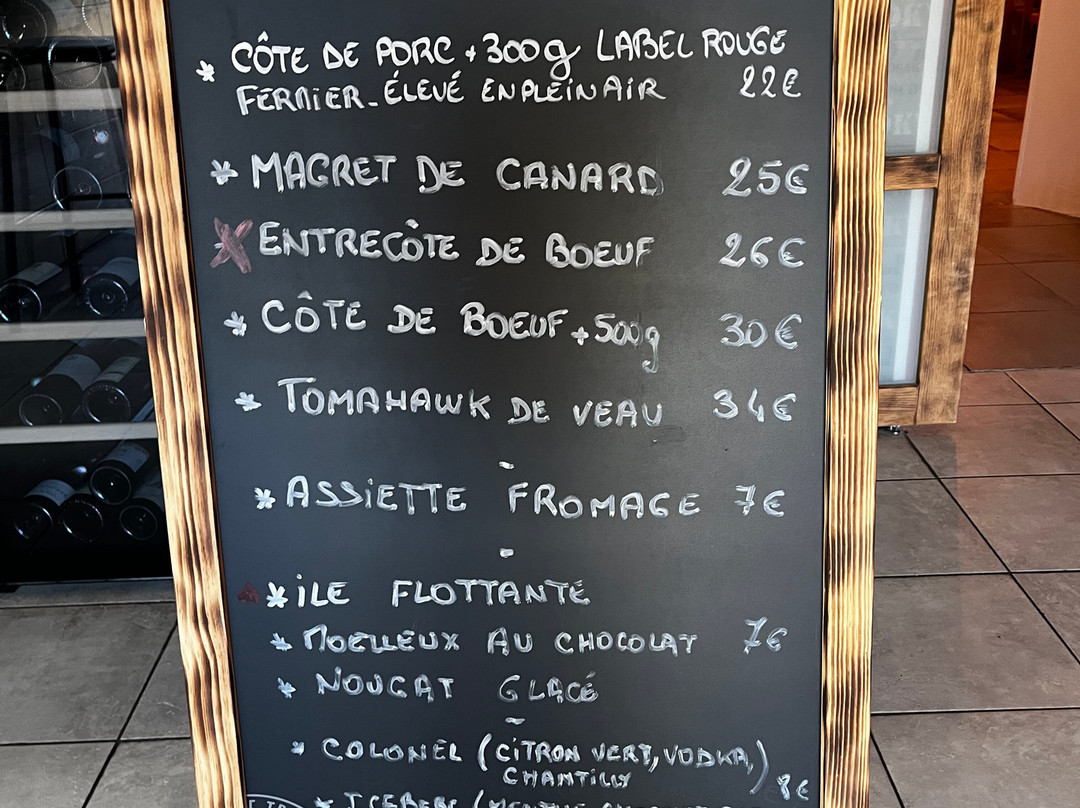 * CÔTE DE PORC + 300g LABEL ROUGE
FERMIER - ÉLEVÉ EN PLEIN AIR 22€
* MAGRET DE CANARD 25€
* ENTRECÔTE DE BOEUF 26€
* CÔTE DE BOEUF + 500g 30€
* TOMAHAWK DE VEAU 34€
-
* ASSIETTE FROMAGE 7€
-
* ILE FLOTTANTE
* MOELLEUX AU CHOCOLAT 7€
* NOUGAT GLACÉ
-
* COLONEL (CITRON VERT, VODKA,
CHANTILLY) 8€
* ICEBERG (MENTHE